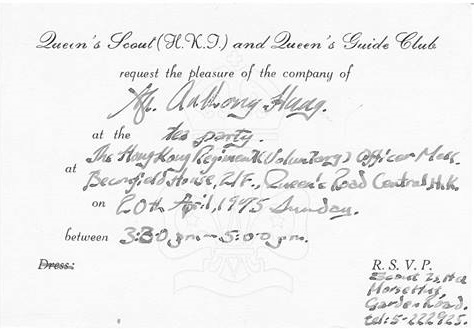 Queen's Scout (H.K.I.) and Queen's Guide Club
request the pleasure of the company of
Mr. Anthony Hung.
at the tea party.
at The Hong Kong Regiment (Voluntary) Officer Mess.
House, 2/F., Queen's Road Central H.K.
on 20th April, 1975 Sunday.
between 3:30 pm - 5:00 pm.
Dress:
R. S. V. P.
Scout
Garden Road.
tel: 5-222925.